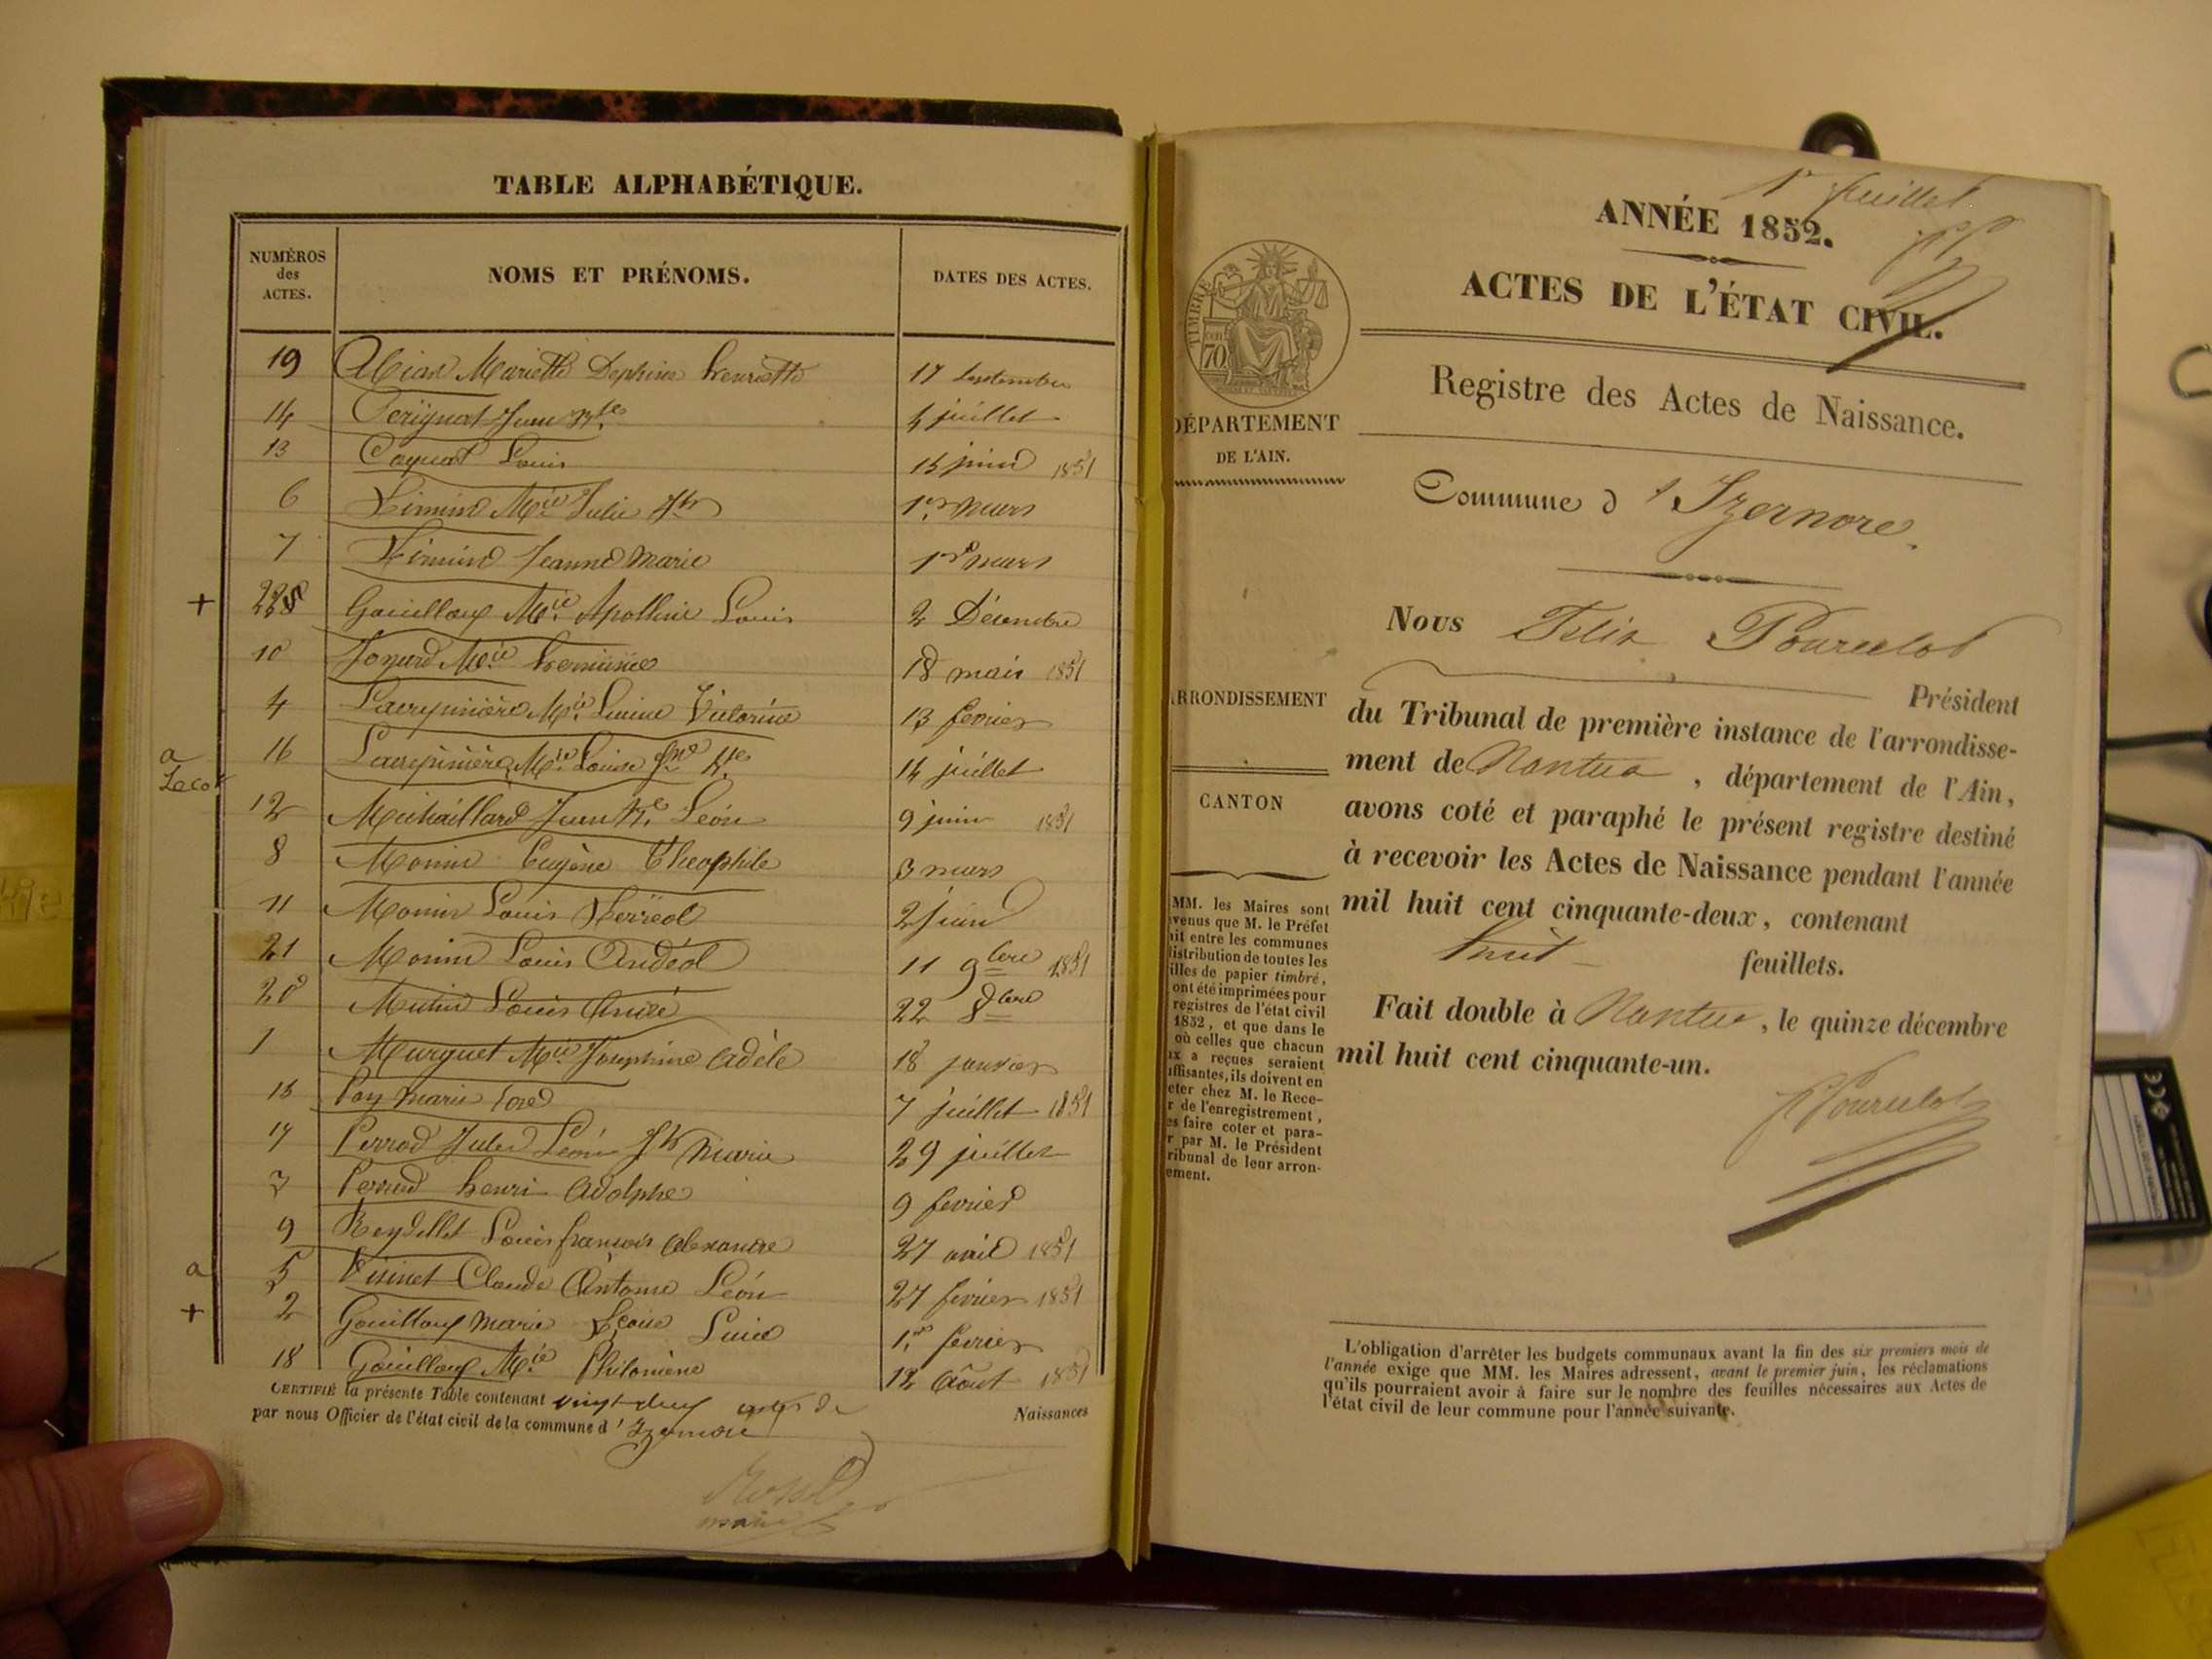 TABLE ALPHABÉTIQUE.
NUMÉROS des ACTES.
NOMS ET PRÉNOMS.
DATES DES ACTES.
19 Marietta Delphine henriette 17 Septembre
14 Jean Bte 4 juillet
13 Coquat Louis 15 juin 1851
6 Mie Julie Jph 1er Mars
7 Jeanne Marie 1er Mars
+ Gouilloux Mie Apollinie Louis 2 Décembre
10 Mie 18 mais 1851
4 Lacrepinière Mie Victorine 13 fevrier
a 16 Lacrepinière Mie Louise 14 juillet
Lacot
12 Michaillard Jean Bte Léon 9 juin 1851
8 Monin Eugène Théophile 3 mars
11 Monin Louis ferréol 2 juin
21 Monin Louis Andéol 11 9bre 1851
20 Mutin Louis Aimé 22 8bre
1 Murguet Mie Josephine Adèle 18 janvier
15 Marie 7 juillet 1851
17 Perrod Jules Léon Jph Marie 29 juillet
3 henri Adolphe 9 fevrier
9 Reydellet Louis françois Alexandre 27 avril 1851
a 5 Visinet Claude Antoine Léon 27 fevrier 1851
+ 2 Gouilloux Marie 1er fevrier
18 Gouilloux Mie Philomène 12 Août 1851
CERTIFIÉ la présente Table contenant vingt-deux actes de Naissances
par nous Officier de l'état civil de la commune d'Izernore
maire
1er feuillet
ANNÉE 1852.
ACTES DE L'ÉTAT CIVIL.
TIMBRE
70
Registre des Actes de Naissance.
DÉPARTEMENT
DE L'AIN.
Commune d'Izernore.
Nous Félix Pourcelot
Président
ARRONDISSEMENT
du Tribunal de première instance de l'arrondisse-
ment de Nantua, département de l'Ain,
CANTON
avons coté et paraphé le présent registre destiné
à recevoir les Actes de Naissance pendant l'année
mil huit cent cinquante-deux, contenant
huit feuillets.
Fait double à Nantua, le quinze décembre
mil huit cent cinquante-un.
Pourcelot
MM. les Maires sont
venus que M. le Préfet
it entre les communes
istribution de toutes les
illes de papier timbré,
ont été imprimées pour
registres de l'état civil
1852, et que dans le
où celles que chacun
x a reçues seraient
uffisantes, ils doivent en
eter chez M. le Rece-
r de l'enregistrement,
es faire coter et para-
r par M. le Président
ribunal de leur arron-
ement.
L'obligation d'arrêter les budgets communaux avant la fin des six premiers mois de
l'année exige que MM. les Maires adressent, avant le premier juin, les réclamations
qu'ils pourraient avoir à faire sur le nombre des feuilles nécessaires aux Actes de
l'état civil de leur commune pour l'année suivante.